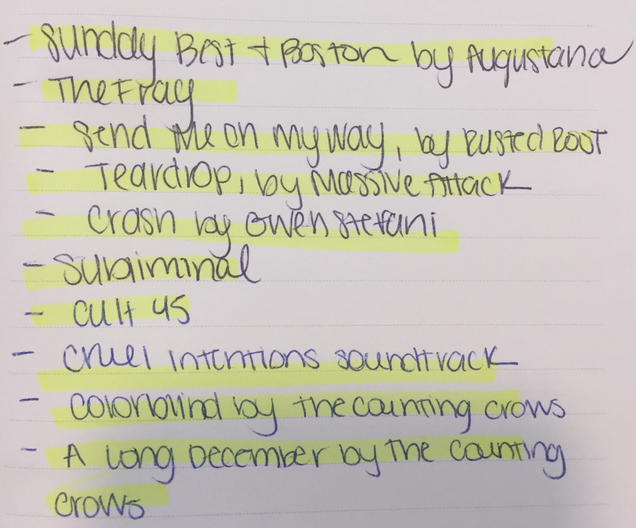 - Sunday Best + Boston by Augustana
- The Fray
- Send Me on My Way, by Rusted Root
- Teardrop, by Massive Attack
- Crash by Gwen Stefani
- Subliminal
- Cult 45
- Cruel Intentions soundtrack
- Colorblind by the counting crows
- A Long December by The Counting
crows